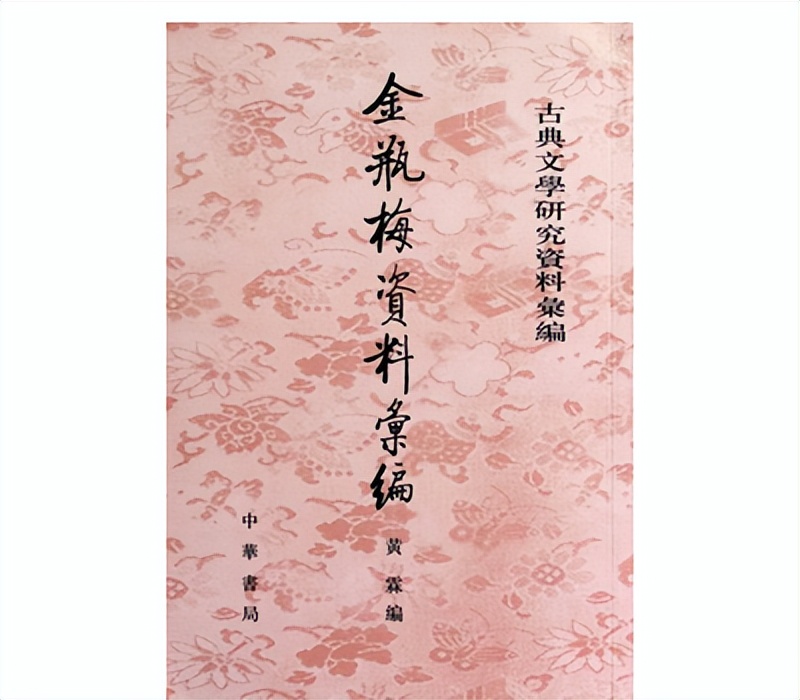 古典文學研究資料彙編
金瓶梅資料彙編
黃霖編
中華書局